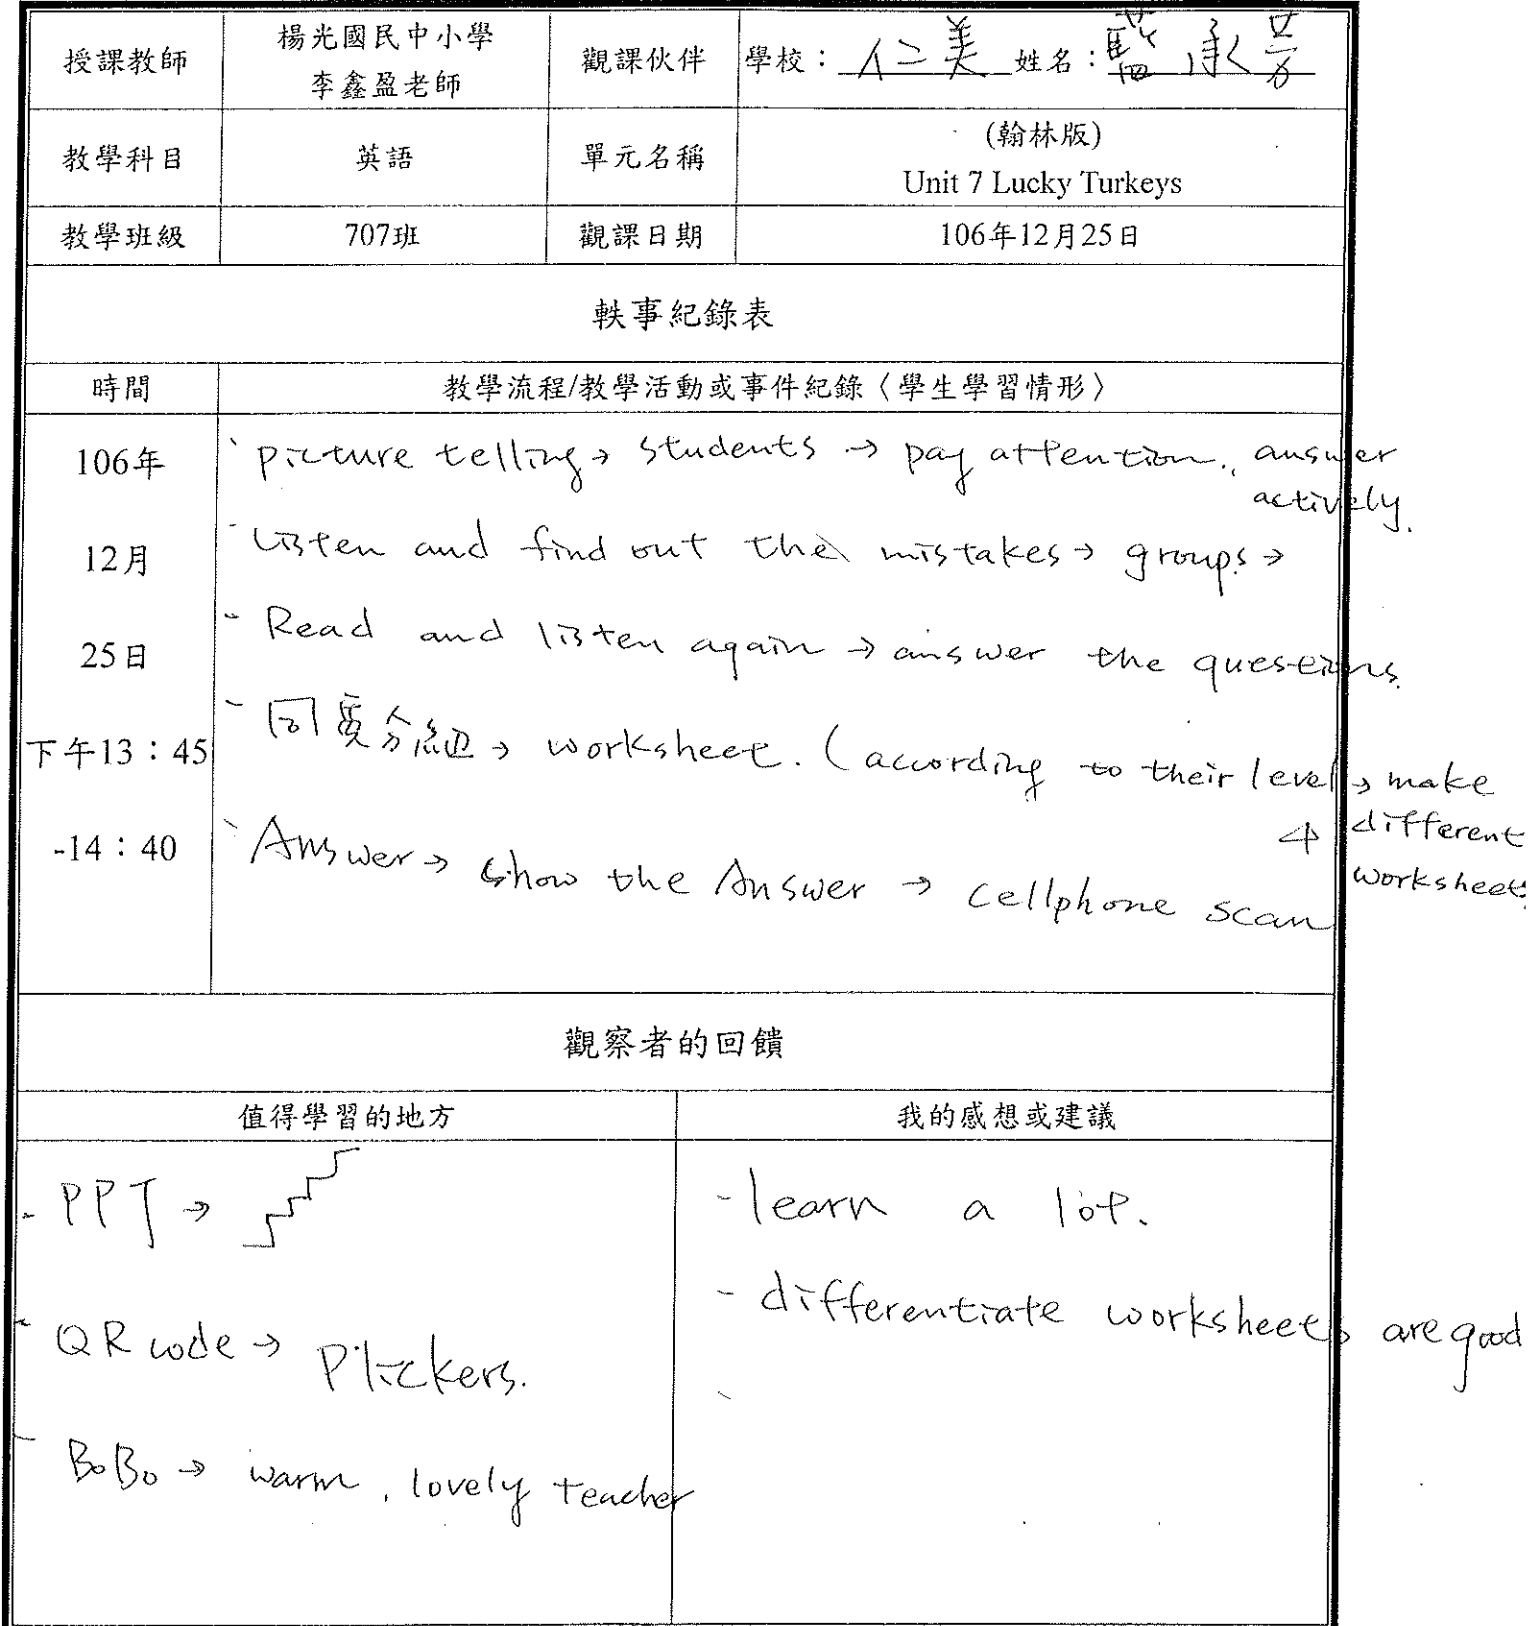 授課教師 楊光國民中小學 李鑫盈老師 觀課伙伴 學校：仁美 姓名：藍承芳
教學科目 英語 單元名稱 (翰林版) Unit 7 Lucky Turkeys
教學班級 707班 觀課日期 106年12月25日
軼事紀錄表
時間 教學流程/教學活動或事件紀錄〈學生學習情形〉
106年
12月
25日
下午13：45
-14：40
picture telling → students → pay attention, answer
actively.
Listen and find out the mistakes → groups →
- Read and listen again → answer the questions.
- 同質分組 → worksheet. (according to their level → make
4 different
worksheets
Answer → show the Answer → cellphone scan
觀察者的回饋
值得學習的地方 我的感想或建議
- PPT →
- QR code → Plickers.
- BoBo → warm, lovely teacher
- learn a lot.
- differentiate worksheets are good